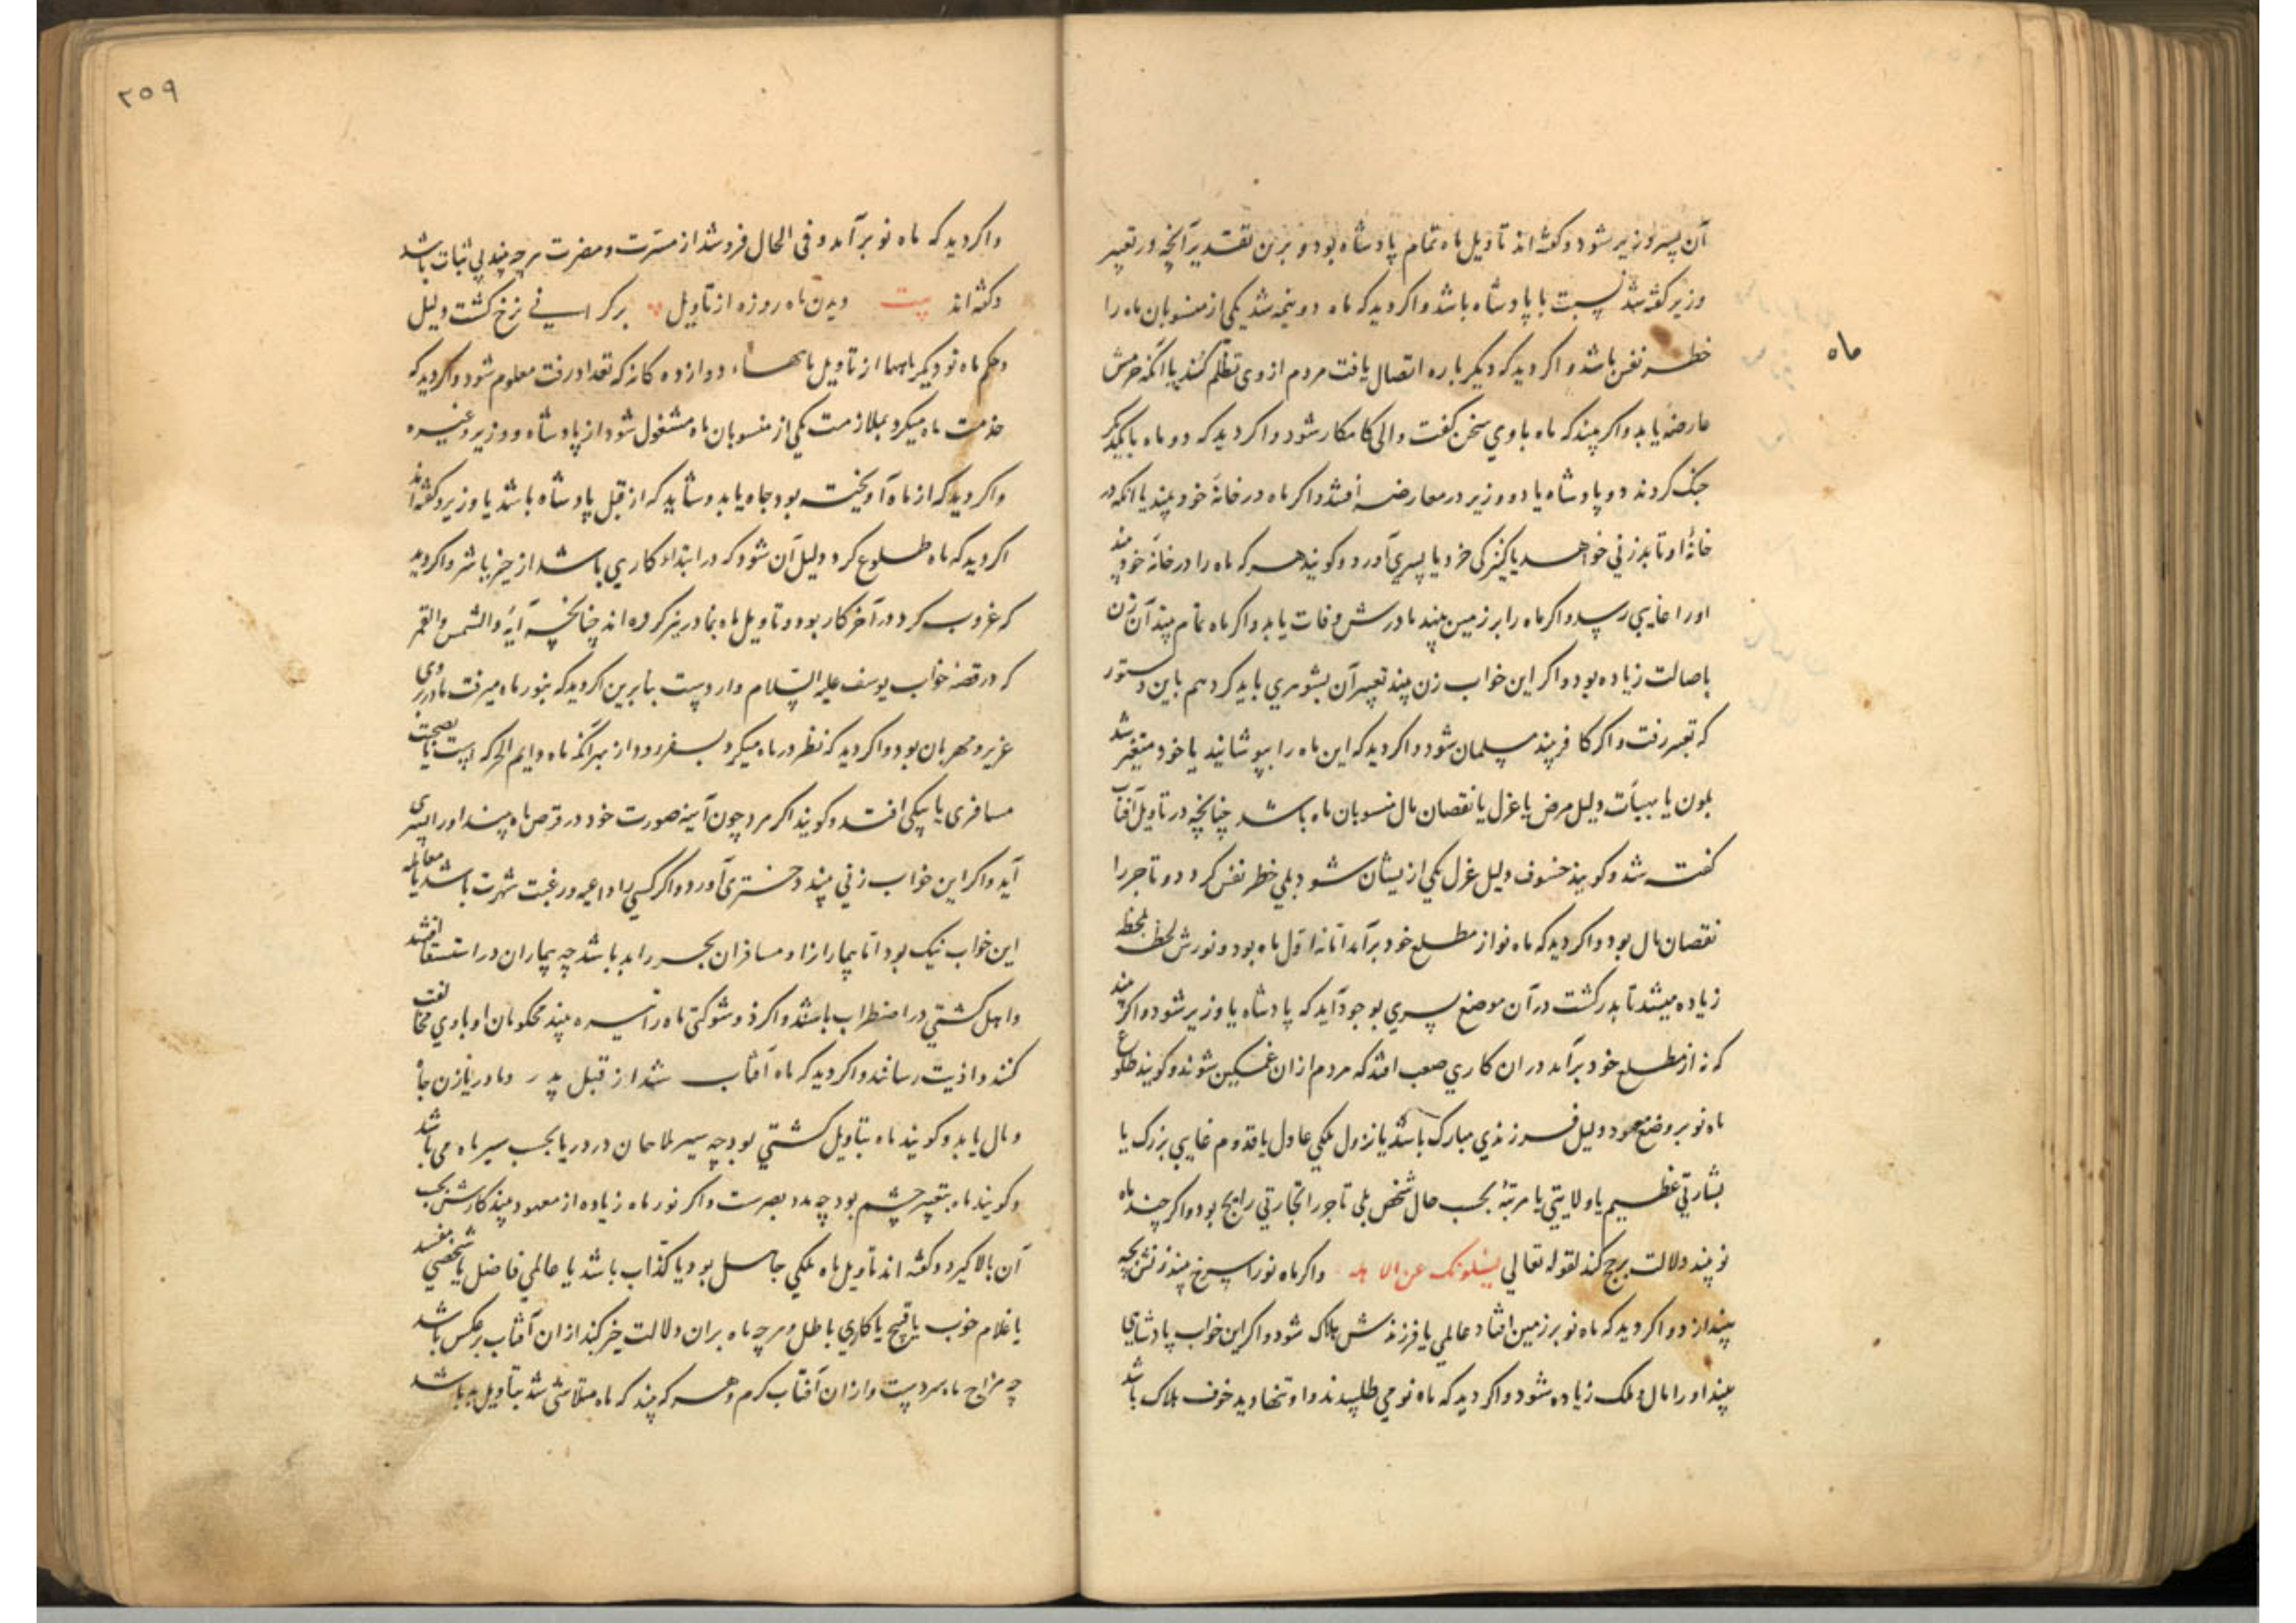 آن پسر وزیر شود و کفته اند تاویل ماه تمام پادشاه بود و برین تقدیر آنچه در تعبیر
وزیر کفته شد نسبت با پادشاه باشد و اکر دید که ماه دو نیمه شد یکی از منسوبان ماه را
ماه
خطر نفس باشد و اکر دید که دیکر باره اتصال یافت مردم از وی تظلم کنند یا آنکه خرمش
عارضه یابد و اکر بیند که ماه با وی سخن کفت والی کامکار شود و اکر دید که دو ماه با یکدیکر
جنک کردند دو پادشاه یا دو وزیر در معارضه افتند و اکر ماه در خانهٔ خود بیند یا آنکه در
خانهٔ او تابد زنی خواهد یا کنیزکی خرد یا پسری آورد و کویند هر که ماه را در خانه خود بیند
او را غایبی رسد و اکر ماه را بر زمین بیند مادرش وفات یابد و اکر ماه تمام بیند آن زن
باصالت زیاده بود و اکر این خواب زن بیند تعبیر آن بشوهری باید کرد هم باین دستور
که تعبیر رفت و اکر کافر بیند مسلمان شود و اکر دید که این ماه را بپوشانید یا خود متغیر شد
بلون یا بهیأت دلیل مرض یا عزل یا نقصان مال منسوبان ماه باشد چنانچه در تاویل آفتاب
کفته شد و کویند خسوف دلیل عزل یکی از یشان شود بلی خطر نفس کرد دو تاجر را
نقصان مال بود و اکر دید که ماه نو از مطلع خود برآمد اما نه اول ماه بود و نورش لحظه بلحظه
زیاده میشد تا بدر کشت در آن موضع پسری بوجود آید که پادشاه یا وزیر شود و اکر بیند
که نه از مطلع خود برآمد در آن کاری صعب افتد که مردم از آن غمکین شوند و کویند طلوع
ماه نو بر وضع معهود دلیل فرزندی مبارک باشد یا نزول ملکی عادل یا قدوم غایبی بزرک یا
بشارتی عظیم یا ولایتی یا مرتبهٔ بحسب حال شخص بلی تاجر را تجارتی رابح بود و اکر چند ماه
نو بیند دلالت بر حج کند لقوله تعالی یسئلونک عن الاهله و اکر ماه نو را سرخ بیند زنش بچه
بیندازد و اکر دید که ماه نو بر زمین افتاد عالمی یا فرزندش هلاک شود و اکر این خواب پادشاهی
بیند او را مال و ملک زیاده شود و اکر دید که ماه نو می طلبیدند و او تنها دید خوف هلاک باشد
۲۵۹
و اکر دید که ماه نو برآمد و فی الحال فرو شد از مسرت و مضرت هر چه بیند بی ثبات باشد
و کفته اند بیت دیدن ماه روزه از تاویل بر کرانی نرخ کشت دلیل
و حکم ماه نو دیکر ماهها از تاویل ماهها دوازده کانه که تعداد رفت معلوم شود و اکر دید که
خدمت ماه میکرد بملازمت یکی از منسوبان ماه مشغول شود از پادشاه و وزیر و غیره
و اکر دید که از ماه آویخته بود جاه یابد و شاید که از قبل پادشاه باشد یا وزیر و کفته اند
اکر دید که ماه طلوع کرد دلیل آن شود که در ابتداء کاری باشد از خیر یا شر و اکر دید
که غروب کرد در آخر کار بود و تاویل ماه بمادر نیز کرده اند چنانچه آیهٔ والشمس والقمر
که در قصه خواب یوسف علیه السلام واردست بنابرین اکر دید که بنور ماه میرفت مادر بر وی
عزیز و مهربان بود و اکر دید که نظر در ماه میکرد بسفر رود از بهر آنکه ماه دایم الحرکه است یا بصحبت
مسافری یا پیکی افتد و کویند اکر مرد چون آینه صورت خود در قرص ماه بیند او را پسری
آید و اکر این خواب زنی بیند دختری آورد و اکر کسی را داعیه و رغبت شهرت باشد یا معامله
این خواب نیک بود اما بیمار را زاد مسافران بحر را بد باشد چه بیماران در استسقا افتند
و اهل کشتی در اضطراب باشند و اکر ذو شوکتی ماه را تیره بیند محکومان او با وی مخالفت
کنند و اذیت رسانند و اکر دید که ماه آفتاب شد از قبل پدر و مادر یا زن جاه
و مال یابد و کویند ماه بتاویل کشتی بود چه سیر ملاحان در دریا بحسب سیر ماه می باشد
و کویند ماه بتعبیر چشم بود چه مدد بصرست و اکر نور ماه زیاده از معهود بیند کارش بحسب
آن بالا کیرد و کفته اند تاویل ماه ملکی جاهل بود یا کذاب باشد یا عالمی فاضل یا شخصی مفسد
یا غلام خوب یا قبیح یا کاری باطل و هر چه ماه بران دلالت خیر کند از آن آفتاب بر عکس باشد
چه مزاج ماه سردست و از آن آفتاب کرم و هر که بیند که ماه متلاشی شد بتاویل بد باشد